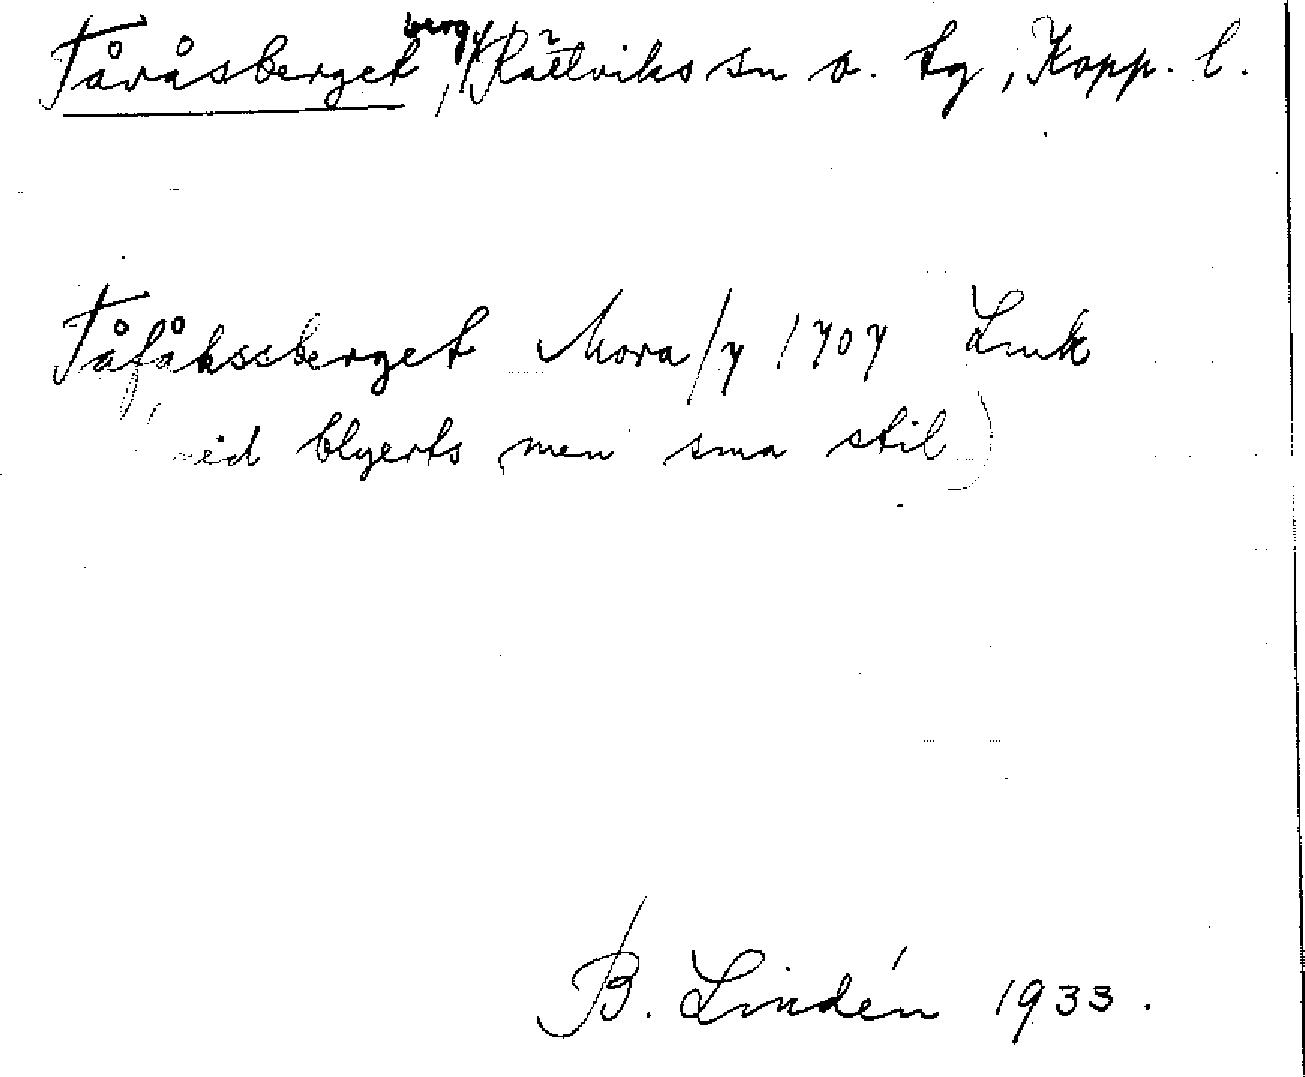 Tåråsberget, berg, Rättviks sn o. tg, Kopp. l.
Tåfåhsseberget Mora/7 1707 Lmk
(vid blyerts men sma stil)
B. Lindén 1933.